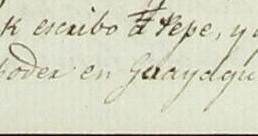 escribo à Pepe, y
poder en Guayaqu